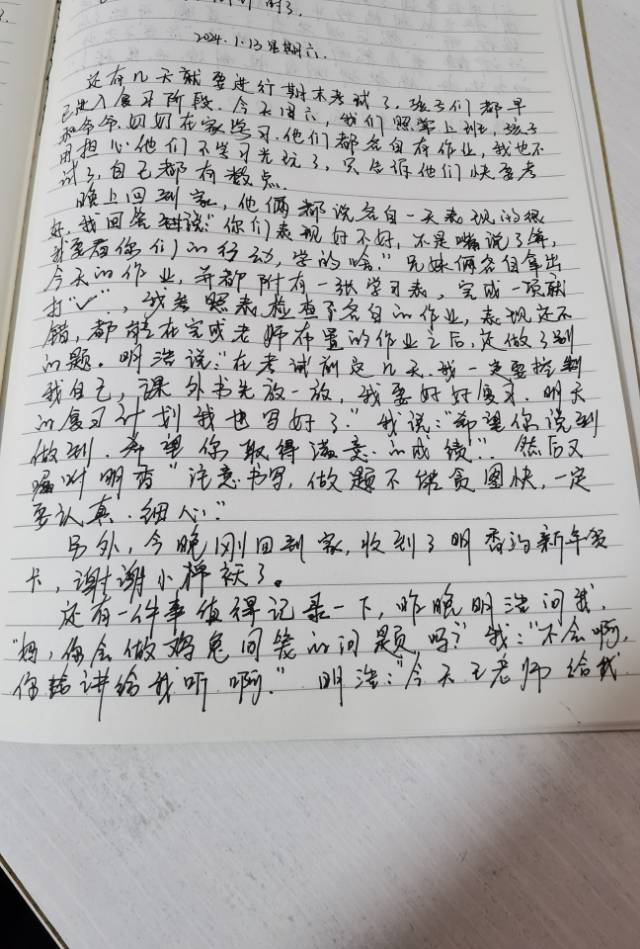 时了.
2024.1.13 星期六.
还有几天就要进行期末考试了,孩子们都早
已进入复习阶段.今天周六,我们照常上班,孩子
和爷爷.奶奶在家学习.他们都各自有作业,我也不
用担心他们不学习光玩了,只告诉他们快要考
试了,自己都有数点.
晚上回到家,他俩都说各自一天表现的很
好,我回答说:"你们表现好不好,不是嘴说了算,
我要看你们的行动,学的啥."兄妹俩各自拿出
今天的作业,并都附有一张学习表,完成一项就
打"✓",我按照表检查了各自的作业,表现还不
错,都能在完成老师布置的作业之后,还做了别
的题。明浩说:"在考试前这几天.我一定要控制
我自己,课外书先放一放,我要好好复习.明天
的复习计划我也写好了."我说:"希望你说到
做到.希望你取得满意的成绩."然后又
嘱咐明香"注意书写,做题不能贪图快,一定
要认真.细心."
另外,今晚刚回到家,收到了明香的新年贺
卡,谢谢小棉袄了。
还有一件事值得记录一下,昨晚明浩问我.
"妈,你会做鸡兔同笼的问题吗?"我:"不会啊,
你给讲给我听啊."明浩:"今天王老师给我